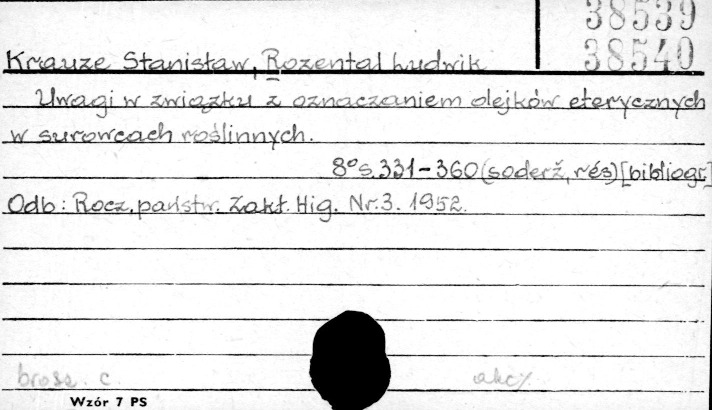 38539
38540
Krauze Stanisław, Rozental Ludwik
Uwagi w związku z oznaczaniem olejków eterycznych
w surowcach roślinnych.
8° s. 331-360 (soderž, rés) [bibliogr.]
Odb: Rocz. państw. Zakł. Hig. Nr. 3. 1952.
brosz. c
akc/
Wzór 7 PS